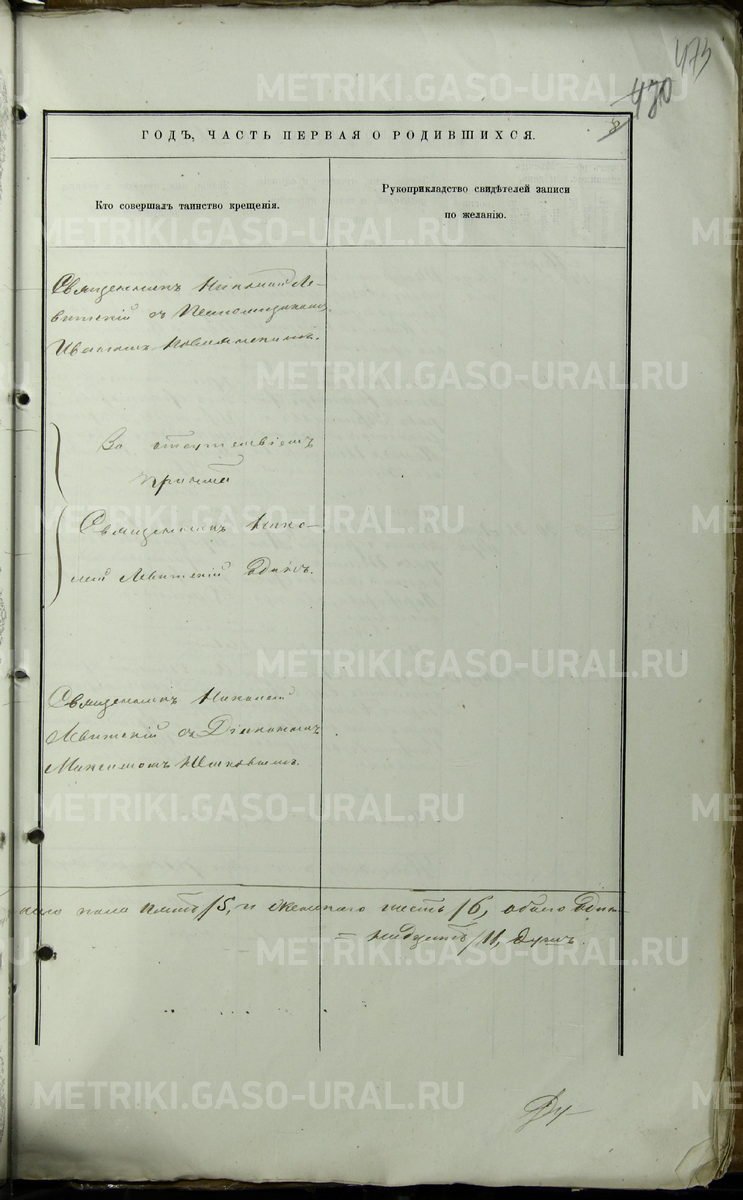 473
470
ГОДЪ, ЧАСТЬ ПЕРВАЯ О РОДИВШИХСЯ.
Кто совершалъ таинство крещенія.
Рукоприкладство свидѣтелей записи
по желанію.
Священникъ Николай Ле-
витскій съ Псаломщикомъ
Иваномъ
За отсутствіемъ
причта
Священникъ Нико-
лай Левитскій одинъ.
Священникъ Николай
Левитскій съ Діакономъ
Максимомъ
пола пять/5, и женскаго шесть/6, обоего один-
=надцать/11, душъ.
METRIKI.GASO-URAL.RU